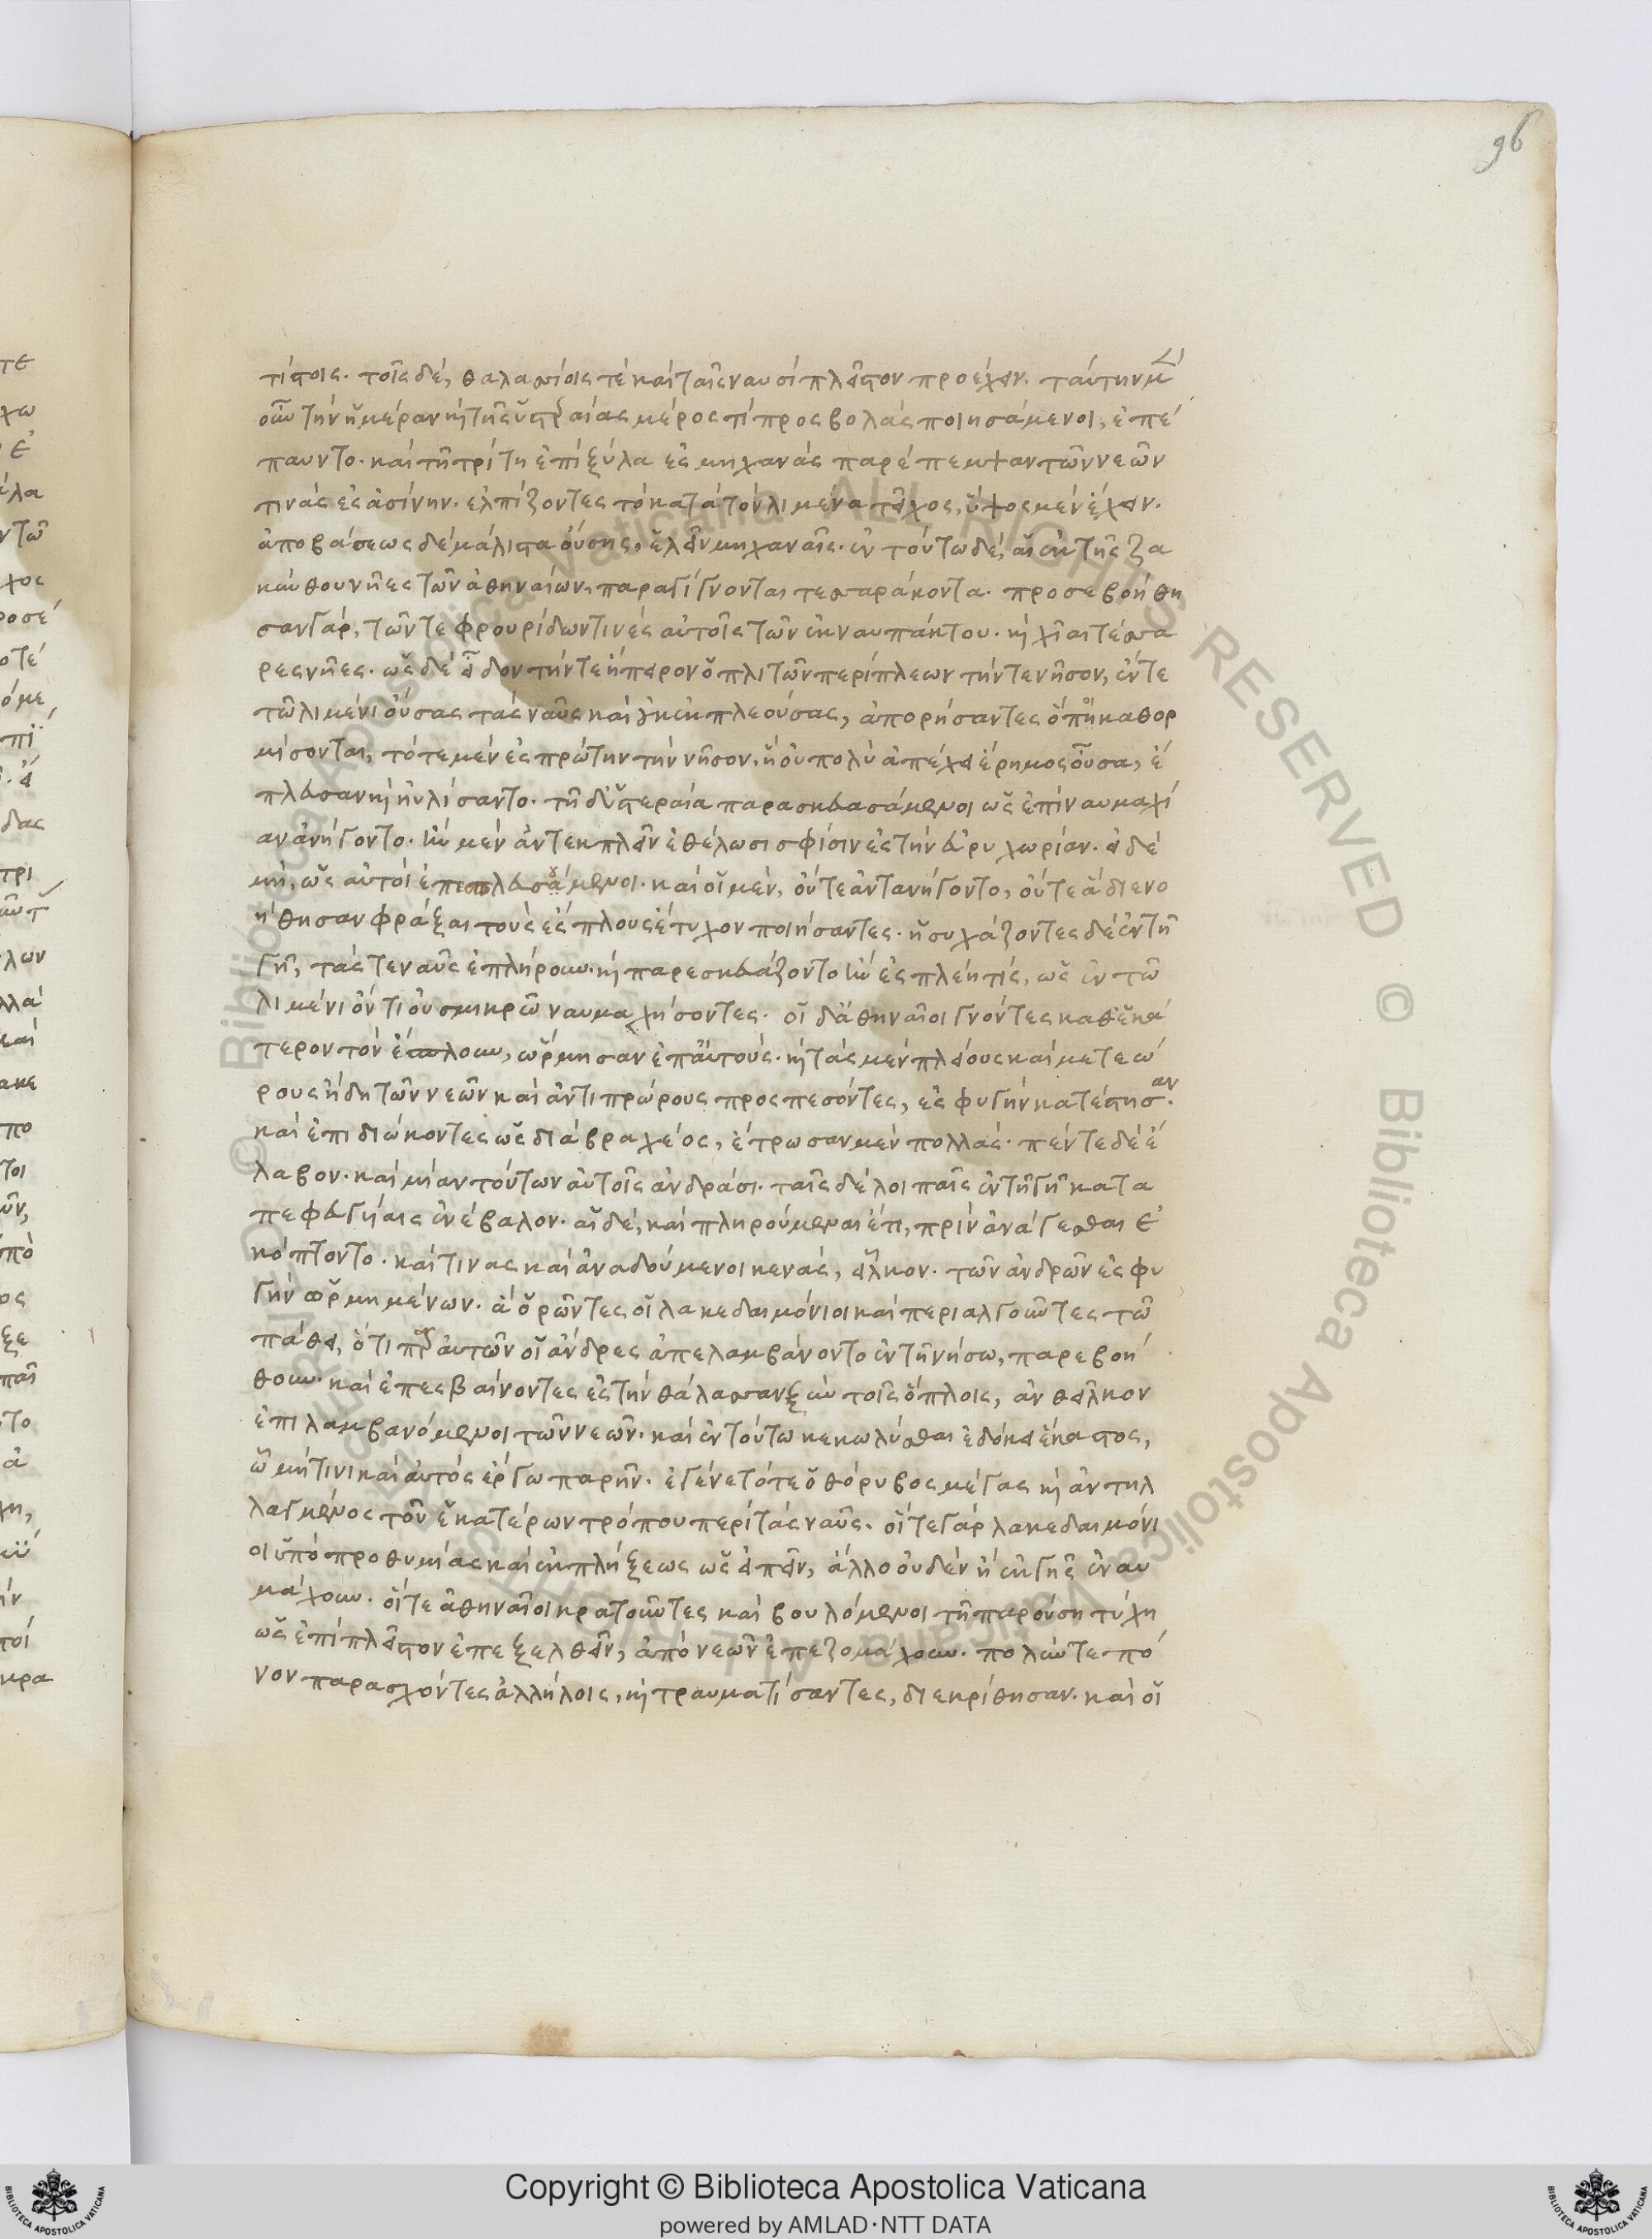 96
τίστοις. τοῖς δέ, θαλασσίοις τέ καί ταῖς ναυσί πλεῖστον προέχειν. ταύτην μὲν
οὖν τήν ἡμέραν καὶ τῆς ὑστεραίας μέρος τί προσβολάς ποιησάμενοι, ἐπέ
παυντο. καί τῆ τρίτη ἐπί ξύλα ἐς μηχανάς παρέπεμψαν τῶν νεῶν
τινάς ἐς ἀσίνην. ἐλπίζοντες τό κατά τόν λιμένα τεῖχος, ὕψος μέν ἔχειν.
ἀποβάσεως δέ μάλιστα οὔσης, ἑλεῖν μηχαναῖς. ἐν τούτω δέ, αἱ ἐκ τῆς ζα
κύνθου νῆες τῶν ἀθηναίων, παραγίγνονται τεσσαράκοντα. προσεβοήθη
σαν γάρ, τῶν τε φρουρίδων τινές αὐτοῖς τῶν ἐκ ναυπάκτου. καὶ χῖαι τέσσα
ρες νῆες. ὡς δέ εἶδον τήν τε ἤπειρον ὁπλιτῶν περίπλεων τήν τε νῆσον, ἔν τε
τῶ λιμένι οὔσας τάς ναῦς καί οὐκ ἐκπλεούσας, ἀπορήσαντες ὅπη καθορ
μίσονται, τότε μέν ἐς πρώτην τήν νῆσον, ἥ οὐ πολύ ἀπέχει ἔρημος οὖσα, ἔ
πλευσαν καὶ ηὐλίσαντο. τῆ δ' ὑστεραία παρασκευασάμενοι ὡς ἐπί ναυμαχί
αν ἀνήγοντο. ἤν μέν ἀντεκπλεῖν ἐθέλωσι σφίσιν ἐς τήν εὐρυχωρίαν. εἰ δέ
μή, ὡς αὐτοί ἐπεσπλευσάμενοι. καί οἱ μέν, οὔτε ἀντανήγοντο, οὔτε ἅ διενο
ήθησαν φράξαι τούς ἔς πλους ἔτυχον ποιήσαντες. ἡσυχάζοντες δέ ἐν τῆ
γῆ, τάς τε ναῦς ἐπλήρουν. καὶ παρεσκευάζοντο ἤν ἐσπλέη τίς, ὡς ἐν τῶ
λιμένι ὄντι οὐ σμικρῶ ναυμαχήσοντες. οἱ δ' ἀθηναῖοι γνόντες καθ' ἑκά
τερον τόν ἔσπλουν, ὥρμησαν ἐπ' αὐτούς. καὶ τάς μέν πλείους καί μετεώ
ρους ἤδη τῶν νεῶν καί ἀντιπρώρους προσπεσόντες, ἐς φυγήν κατέστησαν.
καί ἐπιδιώκοντες ὡς διά βραχέος, ἔτρωσαν μέν πολλάς. πέντε δέ ἔ
λαβον. καί μίαν τούτων αὐτοῖς ἀνδράσι. ταῖς δέ λοιπαῖς ἐν τῆ γῆ κατα
πεφευγυίαις ἐνέβαλον. αἱ δέ, καί πληρούμεναι ἔτι, πρίν ἀνάγεσθαι ἐ
κόπτοντο. καί τινας καί ἀναδούμενοι κενάς, εἷλκον. τῶν ἀνδρῶν ἐς φυ
γήν ὡρμημένων. ἅ ὁρῶντες οἱ λακεδαιμόνιοι καί περιαλγοῦντες τῶ
πάθει, ὅτι περ αὐτῶν οἱ ἄνδρες ἀπελαμβάνοντο ἐν τῆ νήσω, παρεβοή
θουν. καί ἐπεσβαίνοντες ἐς τήν θάλασσαν ξύν τοῖς ὅπλοις, ἀνθεῖλκον
ἐπιλαμβανόμενοι τῶν νεῶν. καί ἐν τούτω κεκωλύσθαι ἐδόκει ἕκαστος,
ὧ μή τινι καί αὐτός ἔργω παρῆν. ἐγένετό τε ὁ θόρυβος μέγας καὶ ἀντηλ
λαγμένος τὸν ἑκατέρων τρόπου περί τάς ναῦς. οἵ τε γάρ λακεδαιμόνι
οι ὑπό προθυμίας καί ἐκπλήξεως ὡς εἰπεῖν, ἄλλο οὐδέν ἤ ἐκ γῆς ἐναυ
μάχουν. οἵ τε ἀθηναῖοι κρατοῦντες καί βουλόμενοι τῆ παρούση τύχη
ὡς ἐπί πλεῖστον ἐπεξελθεῖν, ἀπό νεῶν ἐπεζομάχουν. πολύν τε πό
νον παρασχόντες ἀλλήλοις, καὶ τραυματίσαντες, διεκρίθησαν. καί οἱ
Copyright © Biblioteca Apostolica Vaticana
powered by AMLAD·NTT DATA